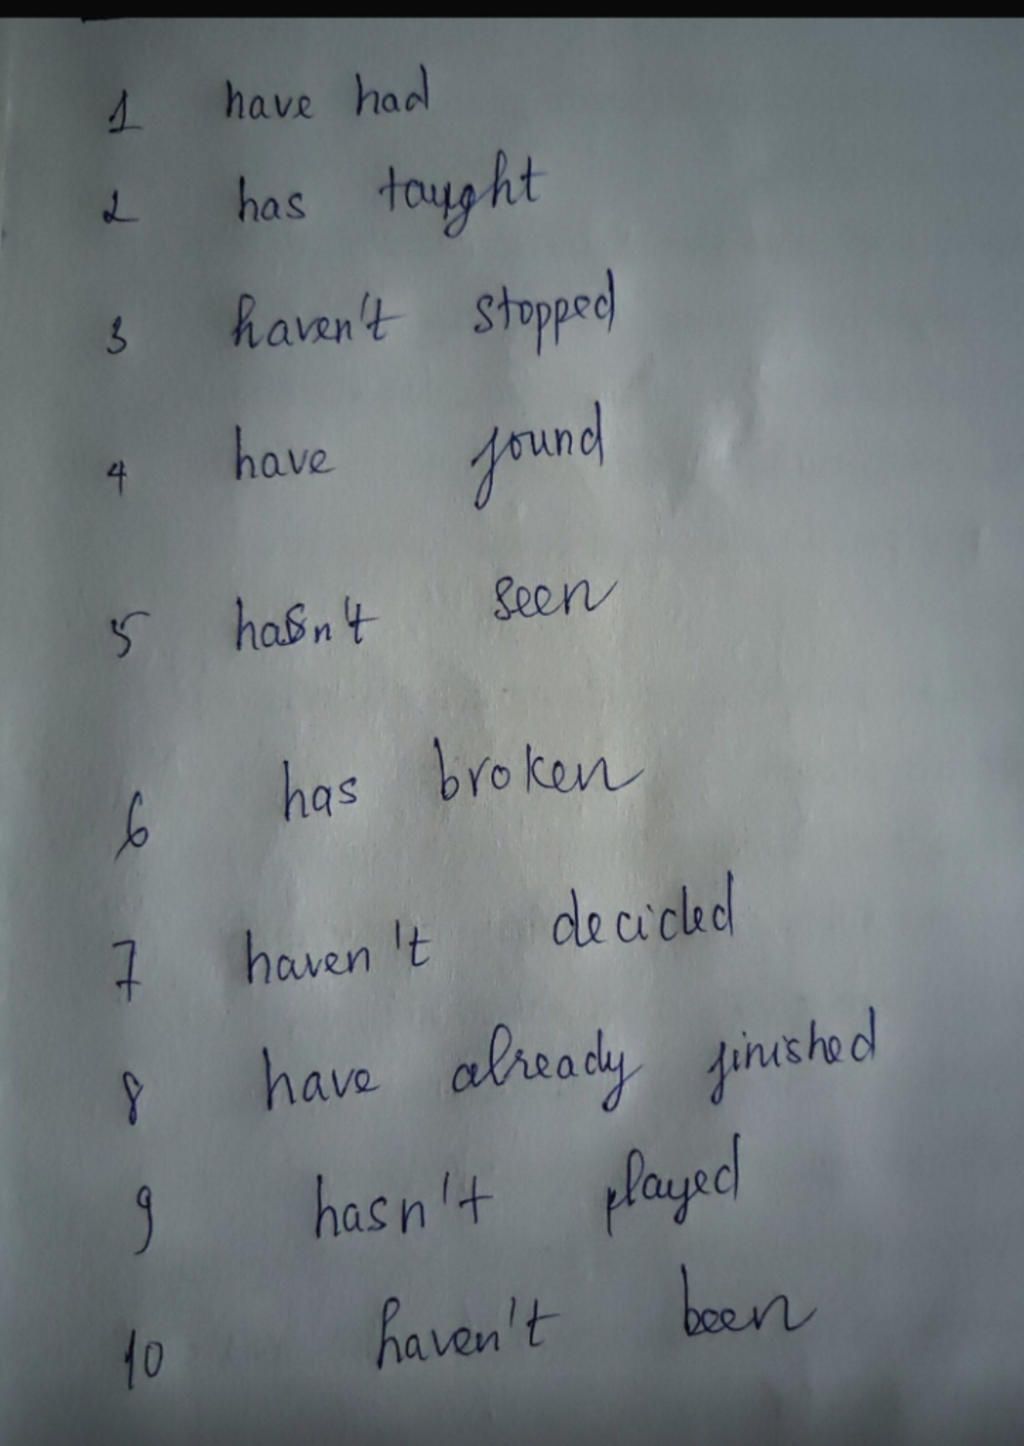 1 have had
2 has taught
3 haven't stopped
4 have found
5 hasn't seen
6 has broken
7 haven't decided
8 have already finished
9 hasn't played
10 haven't been